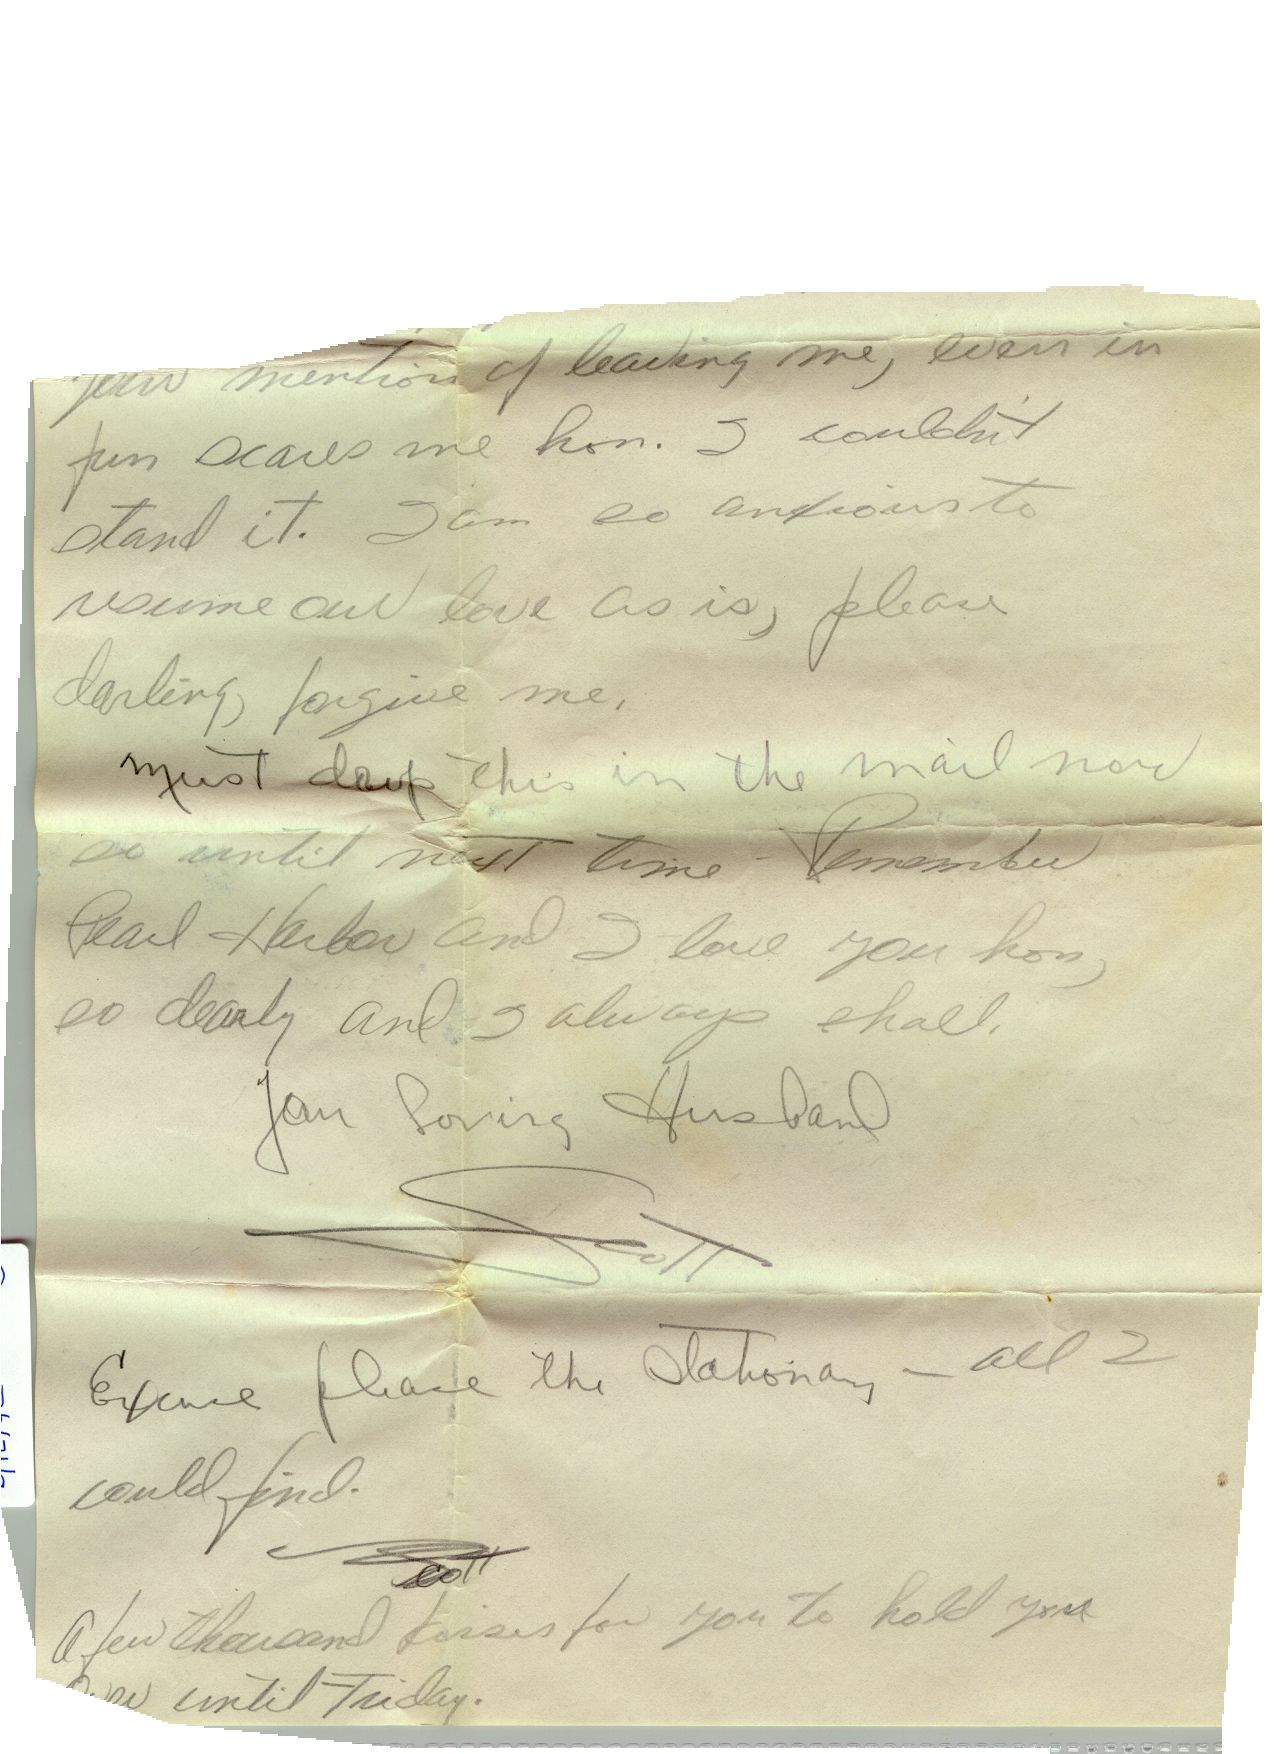 your mention of leaving me, even in
fun scares me hon. I couldn't
stand it. I am so anxious to
resume our love as is, please
darling, forgive me.
must drop this in the mail now
so until next time - Remember
Pearl Harbor and I love you hon,
so dearly and I always shall.
Your Loving Husband
Scott
Excuse please the stationary - all I
could find.
Scott
A few thousand kisses for you to hold you
over until Friday.